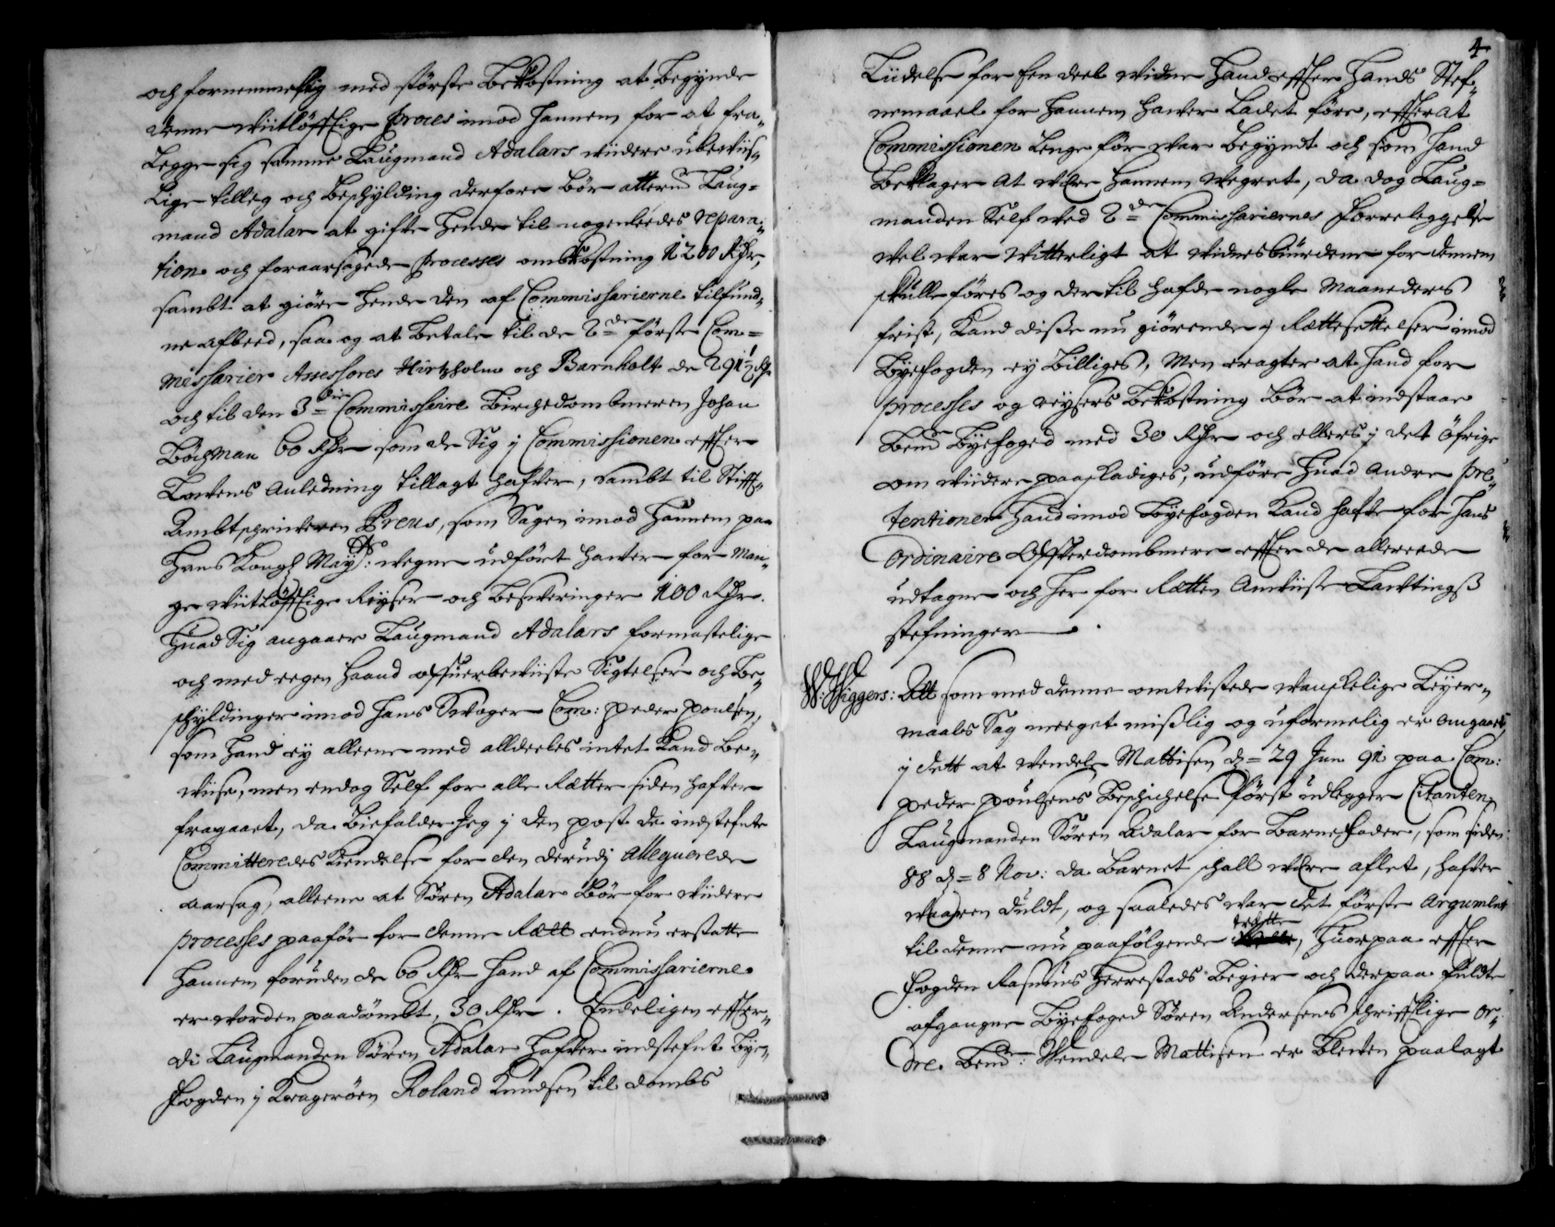 och fornemmelig med störste Bekostning at Begynde
denne vitlöfftige proces imod hannem for at fra„
Legge sig samme Laugmand Adalars videre ubeviis„
lige tilleg och Beschylding derfore bör atterm.t Laug=
mand Adalar at gifte hende til nogenledes repara„
tion og foraarsagede processes ombkostning 1200 Rdr,
sambt at giöre hende den af Commissarierne tilfund„
ne afbeed, saa og at betale til de 2de förste Com=
missarier Assessores Hirtzholm och Barnholt de 291½ Rdr
och til den 3die Commissarie Birchedombmeren Johan
Böchman 60 Rdr som de Sig i Commissionen effter
Lovens Anledning tillagt hafver, sambt til Stifft„
Ambtschriveren Preus, som Sagen imod hannem paa
Hans Kongl May.ts vegne udfört haver for man„
ge vitlöfftige Reyser och besveringer 100 Rdr.
Huad Sig angaaer Laugmand Adalars formastelige
och med eegen haand offuerbeviiste Sigtelser och Be„
schyldinger imod hans Svoger Com: peder poulsen,
som hand ey alleene med alldeeles intet kand be„
viise, men endog Self for alle Retter siden hafver
fragaaet, da Biefalder Jeg i den post de indstefnte
Committeredes kiendelse for den derudj allegverede
aarsag, alleene at Sören Adalar Bör for videre
processes paaför for denne Rett endnu erstatte
hannem foruden de 60 Rdr hand af Commissarierne
er vorden paadömbt, 30 Rdr. Endeligen effter„
di Laugmanden Sören Adalar hafver indstefnt Bye„
fogden i Kragerøen Roland Knudsen til dombs
4
Liidelse for een deel vidner hand effter hands Stef„
nemaal for hannem haver ladet före, effter at
Commissionen lenge för var begyndt och som hand
beklager at vere hannem vegret, da dog Laug=
manden Self ved 2de Commissariernes forreleggelse
vel var vitterligt at vidnesbiurdene for dennem
skulle föres og der til hafde nogle Maaneders
frist, kand disse nu giörende i Rettesettelser imod
Byefogden ey billiges, Men eragter at hand for
processes og reysers bekostning bör at indstaae
bem.te Byefoged med 30 Rdr och ellers i det öfrige
om videre paastadiges, udföre huad andre præ„
tentioner hand imod Byefogden kand hafve for hans
ordinaire Offverdombmere effter de allereede
udtagne och her for Retten anviiste Lavtings
stefninger.
W: Wiggers: Alt som med denne omtvistede vanskelige Leyer„
maals Sag meeget misslig og uformelig er angaaet,
i dett at Vendele Mattisen d= 29 Jun 91 paa Com:
peder poulsens Beschichelse först udlegger Citanten
Laugmanden Sören Adalar for Barnefader, som siden
88 d= 8 Nov: da Barnet schall vere aflet, hafver
vaaren duldt, og saaledes var det förste Argument
til denne nu paafölgende trette, Huorpaa effter
fogden Rasmus Herrestads Begier och derpaa fuldte
afgangne Byefoged Sören Andersens schrifftlige or„
dre bem.te Vendele Mattisen er bleven paalagt